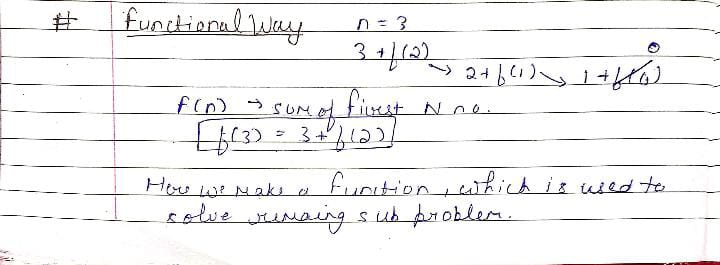 # Functional Way n = 3
3 + f(2)
→ 2 + f(1) → 1 + f(0) 0
f(n) → sum of fiirst N no.
f(3) = 3 + f(2)
Here we make a function, which is used to
solve remaing sub problem.